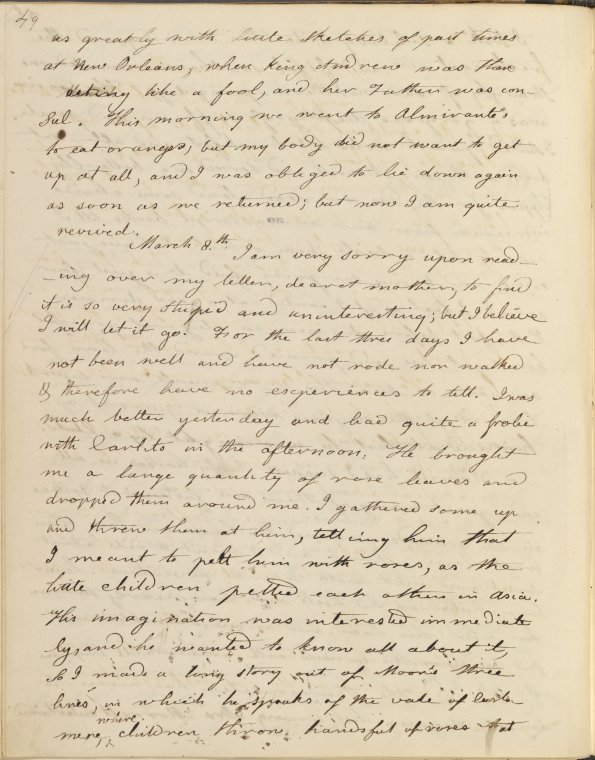 49
us greatly with little sketches of past times
at New Orleans, when King Andrew was then
acting like a fool, and her Father was con-
sul. This morning we went to Almirante's
to eat oranges; but my body did not want to get
up at all, and I was obliged to lie down again
as soon as we returned; but now I am quite
revived.
NYPL
March 8th I am very sorry upon read-
-ing over my letter, dearest mother, to find
it is so very stupid and uninteresting; but I believe
I will let it go. For the last three days I have
not been well and have not rode nor walked
& therefore have no experiences to tell. I was
much better yesterday and had quite a frolic
with Carlito in the afternoon. He brought
me a large quantity of rose leaves and
dropped them around me. I gathered some up
and threw them at him, telling him that
I meant to pelt him with roses, as the
little children pelted each other in Asia.
His imagination was interested immediate
ly, and he wanted to know all about it,
so I made a long story out of Moor's three
lines, in which he speaks of the vale of Cash-
mere, where children throw handsful of roses at